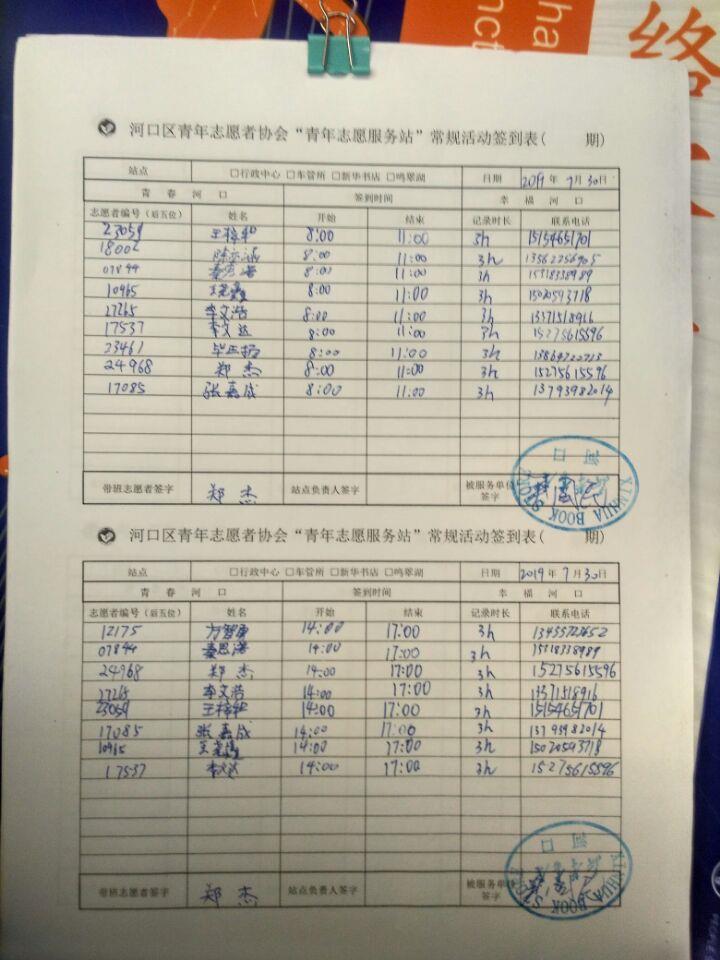 络
河口区青年志愿者协会“青年志愿服务站”常规活动签到表( 期)
站点 □行政中心 □车管所 □新华书店 □鸣翠湖 日期 2019 年 7 月 30 日
青 春 河 口 签到时间 幸 福 河 口
志愿者编号(后五位) 姓名 开始 结束 记录时长 联系电话
23059 王梓 8:00 11:00 3h 15154651701
18002 8:00 11:00 3h
07844 8:00 11:00 3h 15918338989
10965 8:00 11:00 3h 15020593718
27265 李文浩 8:00 11:00 3h 13371518916
17537 李文达 8:00 11:00 3h 15275615596
23461 8:00 11:00 3h
24968 郑杰 8:00 11:00 3h 15275615596
17085 张嘉成 8:00 11:00 3h 13793982014
带班志愿者签字 郑杰 站点负责人签字 被服务单位签字
XINHUA BOOK STORE
河口区青年志愿者协会“青年志愿服务站”常规活动签到表( 期)
站点 □行政中心 □车管所 □新华书店 □鸣翠湖 日期 2019 年 7 月 30 日
青 春 河 口 签到时间 幸 福 河 口
志愿者编号(后五位) 姓名 开始 结束 记录时长 联系电话
12175 14:00 17:00 3h
07844 14:00 17:00 3h 15918338989
24968 郑杰 14:00 17:00 3h 15275615596
27265 李文浩 14:00 17:00 3h 13371518916
23059 王梓 14:00 17:00 3h 15154651701
17085 张嘉成 14:00 17:00 3h 13793982014
10965 14:00 17:00 3h 15020593718
17537 李文达 14:00 17:00 3h 15275615596
带班志愿者签字 郑杰 站点负责人签字 被服务单位签字
XINHUA BOOK STORE